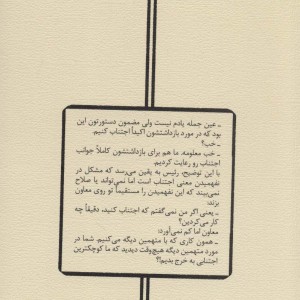 ـ عین جمله یادم نیست ولی مضمون دستورتون این
بود که در مورد بازداشتشون اکیداً اجتناب کنیم.
ـ خب؟
ـ خب معلومه، ما هم برای بازداشتشون کاملاً جوانب
اجتناب رو رعایت کردیم.
با این توضیح، رئیس به یقین می‌رسد که مشکل در
نفهمیدن معنی اجتناب است اما نمی‌تواند یا صلاح
نمی‌بیند که این نفهمیدن را مستقیماً تو روی معاون
بزند:
ـ یعنی اگر من نمی‌گفتم که اجتناب کنید، دقیقاً چه
کار می‌کردین؟
معاون اما کم نمی‌آورد:
ـ همون کاری که با متهمین دیگه می‌کنیم. شما در
مورد متهمین دیگه هیچ‌وقت دیدید که ما کوچکترین
اجتنابی به خرج بدیم؟!